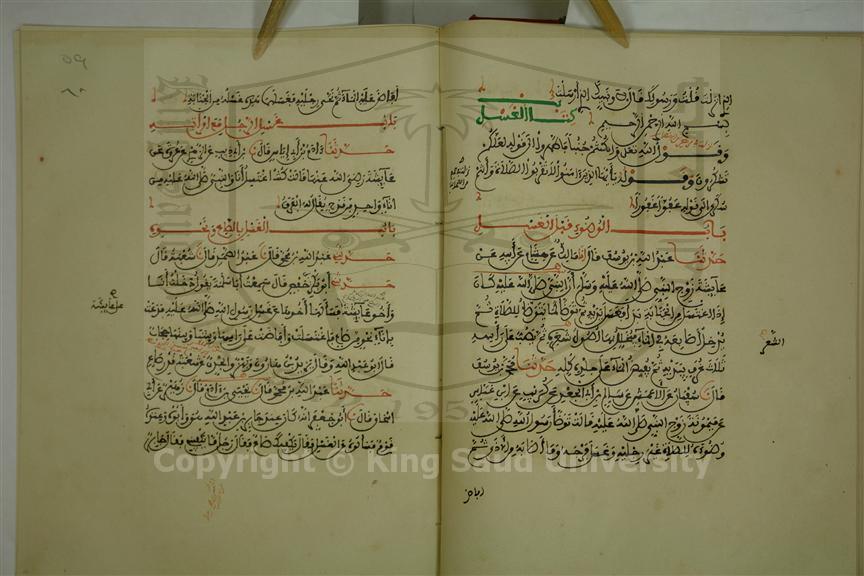 انزلت قلت ورسولك قال لا ونبيك الذي ارسلت
كتاب الغسل
بسم الله الرحمن الرحيم
وقول الله تعلى وان كنتم جنبا فاطهروا الى قوله لعلكم
تشكرون وقوله يا أيها الذين ءامنوا لا تقربوا الصلاة وانتم
سكارى الى قوله عفوا غفورا
باب الوضوء قبل الغسل
حدثنا عبد الله بن يوسف قال انا مالك عن هشام عن أبيه عن
عايشة زوج النبي صلى الله عليه وسلم أن النبي صلى الله عليه كان
إذا اغتسل من الجنابة بدأ فغسل يديه ثم توضأ كما يتوضأ للصلاة ثم
يدخل أصابعه في الماء فيخلل بها أصول شعره ثم يصب على رأسه
ثلث غرف بيديه ثم يفيض الماء على جلده كله حدثنا محمد بن يوسف
قال سفيان عن الأعمش عن سالم بن أبي الجعد عن كريب عن ابن عباس
عن ميمونة زوج النبي صلى الله عليه قالت توضأ رسول الله صلى الله عليه
وضوءه للصلاة غير رجليه وغسل فرجه وما أصابه من الأذى ثم
الشعر
افاض
أفاض عليه الماء ثم نحى رجليه فغسلهما هذه غسله من الجنابة
باب غسل الرجل مع امرأته
حدثنا ادم بن أبي إياس قال ابن أبي ذيب عن الزهري عن عروة عن
عايشة رضي الله عنها قالت كنت اغتسل أنا والنبي صلى الله عليه من
اناء واحد من قدح يقال له الفرق
باب الغسل بالصاع ونحوه
حدثني عبد الله بن محمد قال عبد الصمد قال شعبة قال
حدثني أبو بكر بن حفص قال سمعت أبا سلمة يقول دخلت أنا
وأخو عايشة فسألها أخوها عن غسل رسول الله صلى الله عليه فدعت
بإناء نحو من صاع فاغتسلت وأفاضت على رأسها وبيننا وبينها حجاب
قال أبو عبد الله وقال يزيد بن هارون وبهز والجدي عن شعبة قدر صاع
حدثنا عبد الله بن محمد قال يحيى بن ادم قال زهير عن أبي
اسحاق قال أبو جعفر أنه كان عند جابر بن عبد الله هو وأبوه وعنده
قوم فسألوه عن الغسل فقال يكفيك صاع فقال رجل ما يكفيني فقال جابر
على عايشة
Copyright © King Saud University